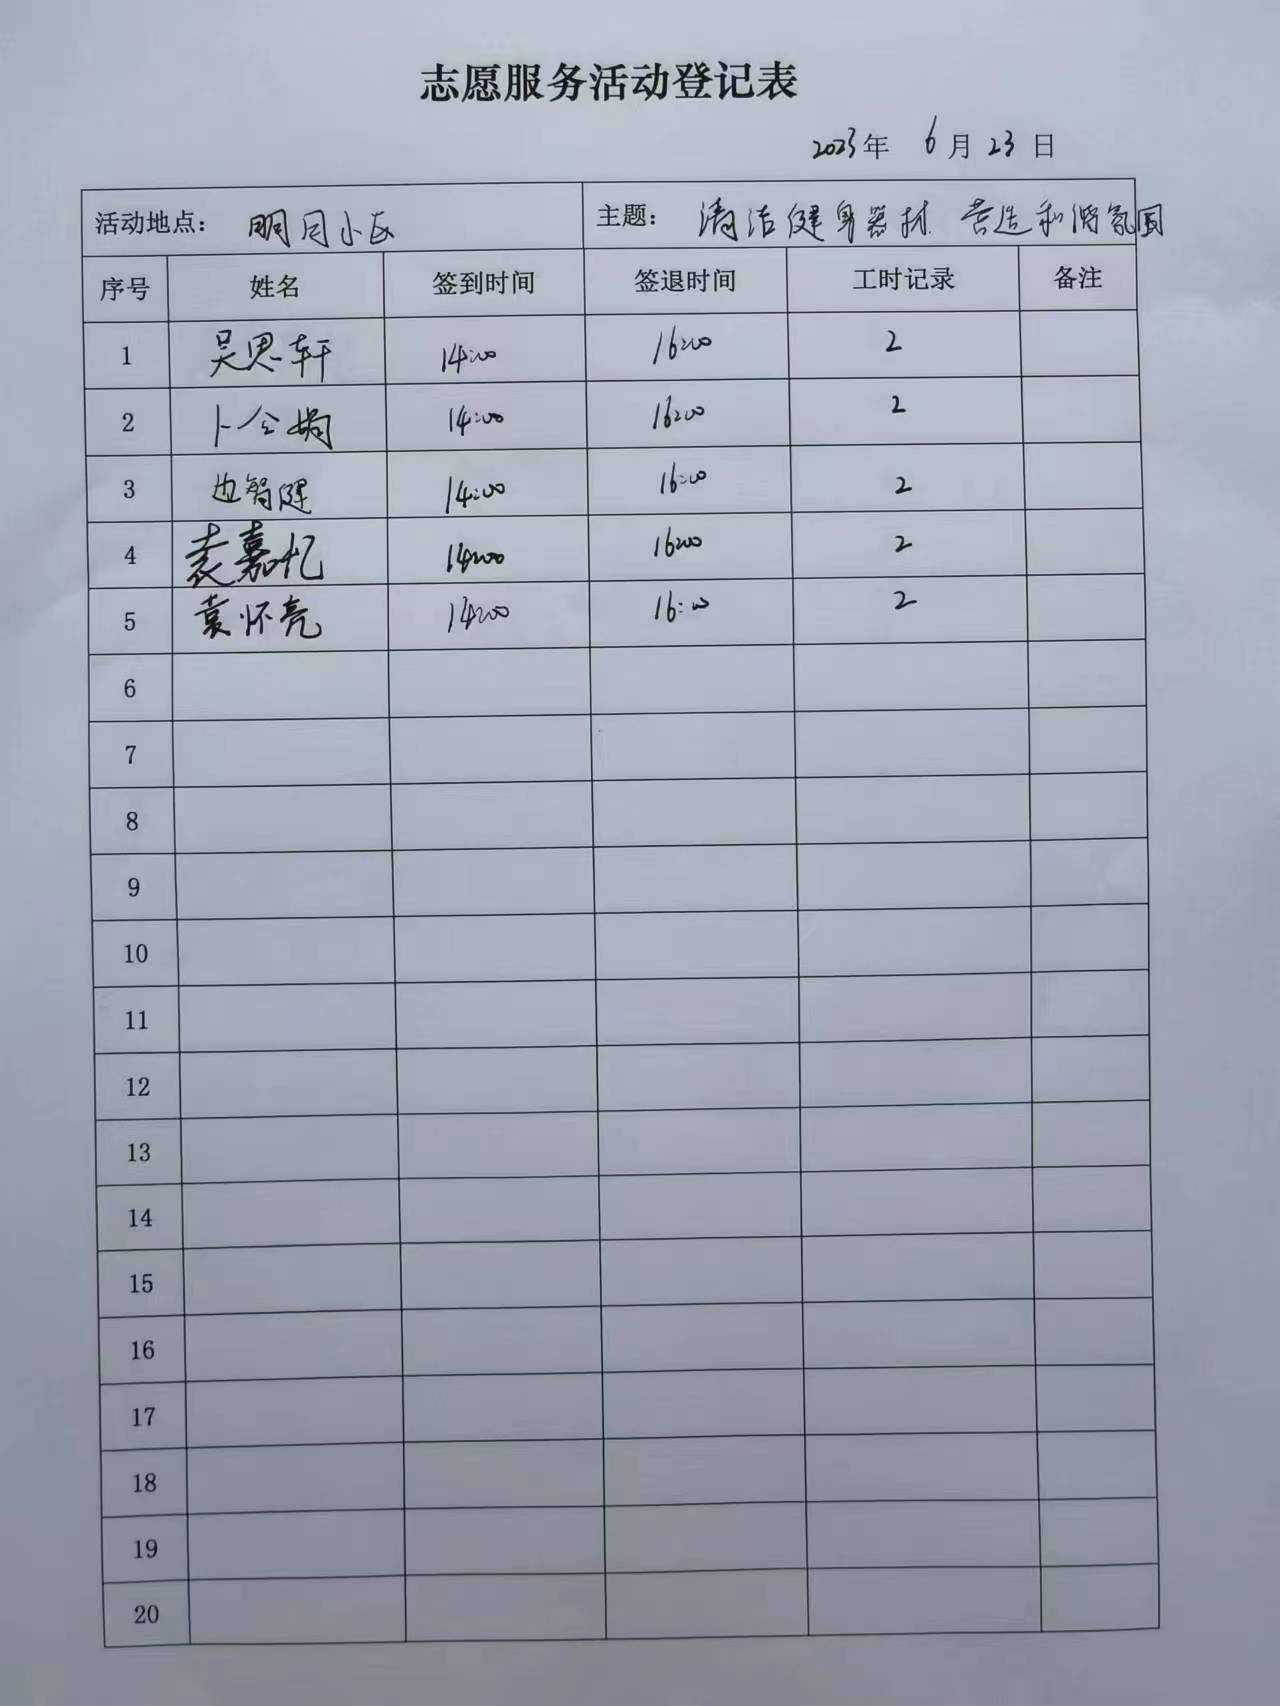 志愿服务活动登记表
2023年 6月23日
活动地点： 明月小区 主题： 清洁健身器材 营造和谐氛围
序号 姓名 签到时间 签退时间 工时记录 备注
1 吴思轩 14:00 16:00 2
2 卜令娟 14:00 16:00 2
3 边智健 14:00 16:00 2
4 袁嘉忆 14:00 16:00 2
5 袁怀亮 14:00 16:00 2
6
7
8
9
10
11
12
13
14
15
16
17
18
19
20